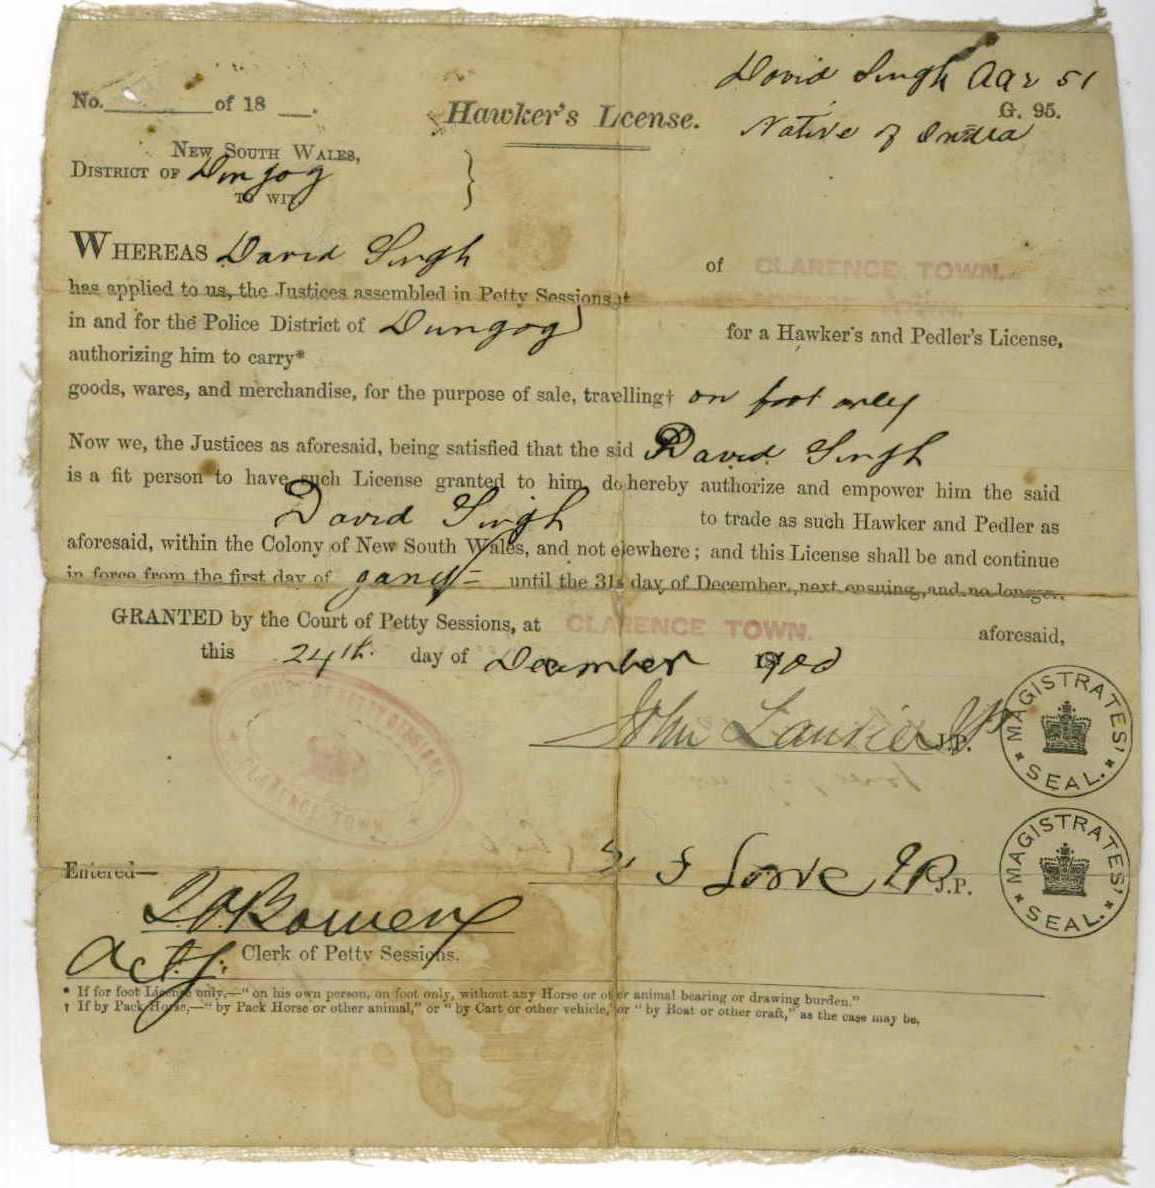 David Singh Age 51
No. of 18 .
Hawker's License.
G. 95.
Native of India
NEW SOUTH WALES,
DISTRICT OF Dungog
TO WIT
WHEREAS David Singh of CLARENCE TOWN.
has applied to us, the Justices assembled in Petty Sessions at
in and for the Police District of Dungog for a Hawker's and Pedler's License,
authorizing him to carry*
goods, wares, and merchandise, for the purpose of sale, travelling† on foot only
Now we, the Justices as aforesaid, being satisfied that the said David Singh
is a fit person to have such License granted to him, do hereby authorize and empower him the said
David Singh to trade as such Hawker and Pedler as
aforesaid, within the Colony of New South Wales, and not elsewhere; and this License shall be and continue
in force from the first day of Jany until the 31st day of December, next ensuing, and no longer.
GRANTED by the Court of Petty Sessions, at CLARENCE TOWN. aforesaid,
this 24th. day of December 1900
COURT OF PETTY SESSIONS
CLARENCE TOWN
John Laurie JP J.P.
MAGISTRATES' SEAL.
Love JP J.P.
MAGISTRATES' SEAL.
Entered—
Bowen
Actg. Clerk of Petty Sessions.
* If for foot License only,—"on his own person, on foot only, without any Horse or other animal bearing or drawing burden."
† If by Pack Horse,—"by Pack Horse or other animal," or "by Cart or other vehicle," or "by Boat or other craft," as the case may be.